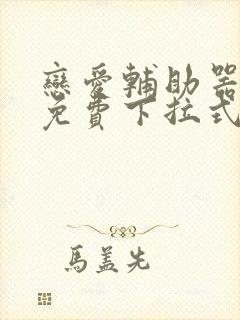 戀愛輔助器
免費下拉式
馬蓋先